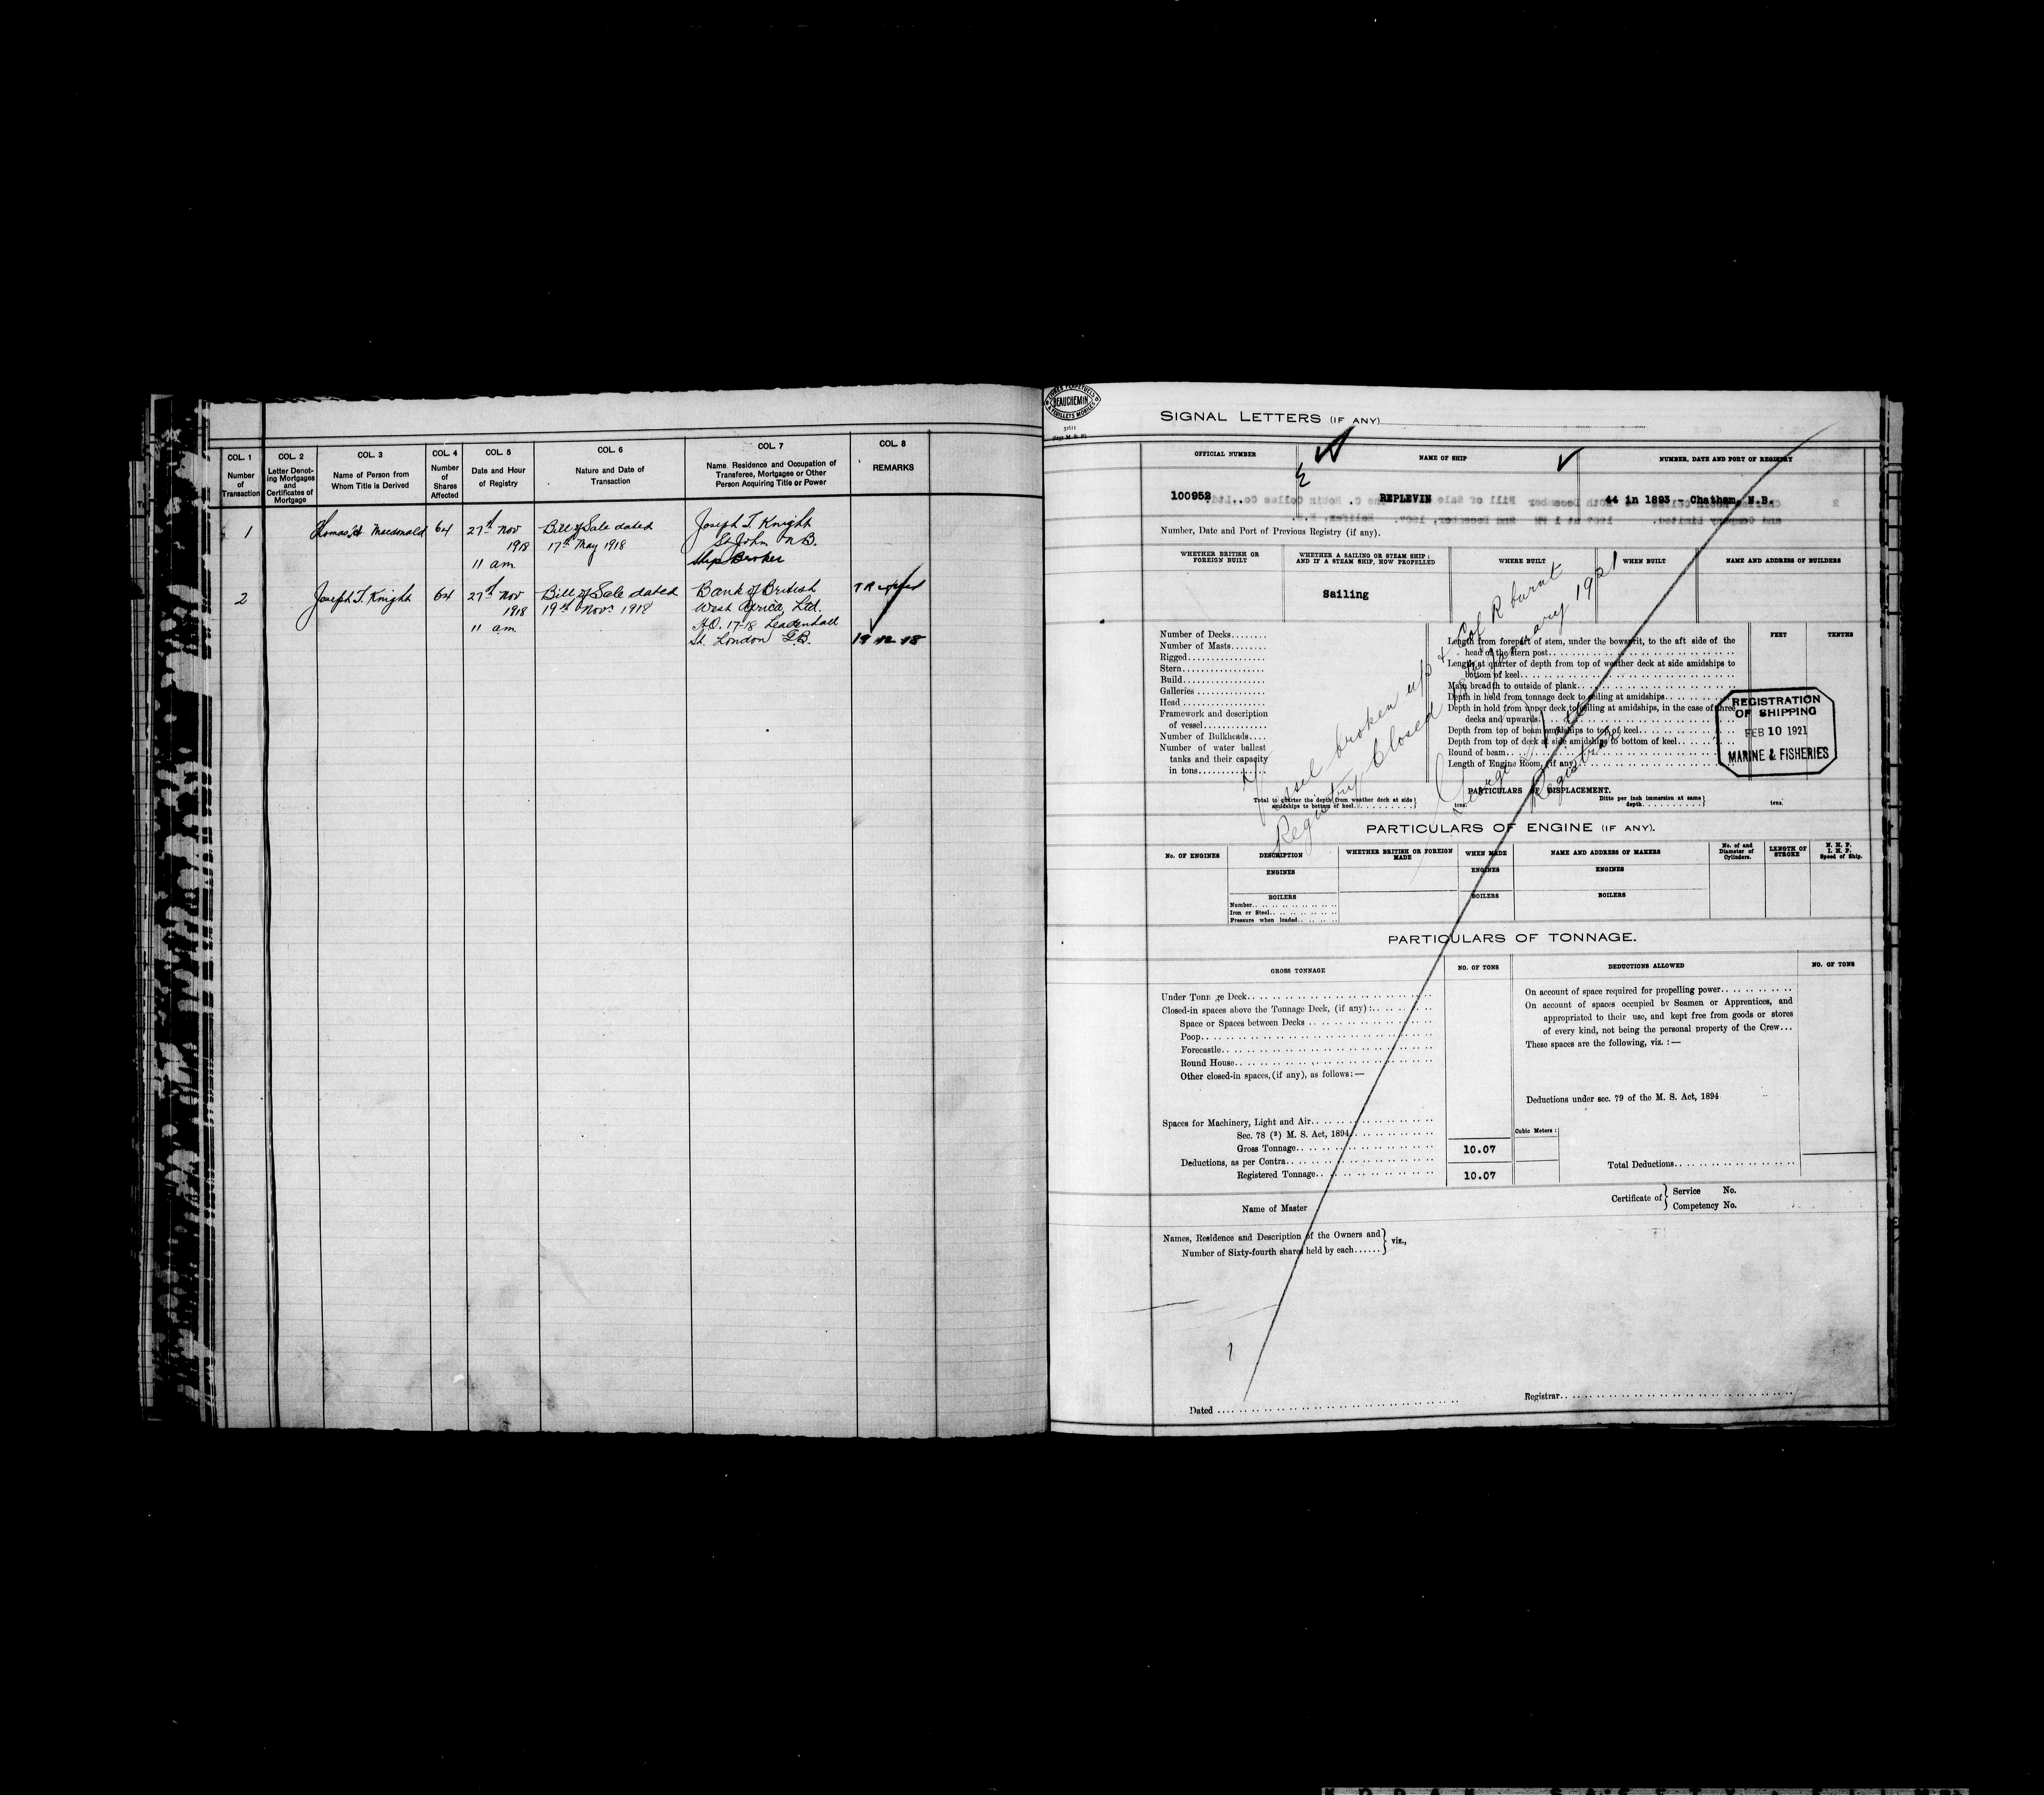 COL. 1
Number
of
Transaction
COL. 2
Letter Denot-
ing Mortgages
and
Certificates of
Mortgage
COL. 3
Name of Person from
Whom Title is Derived
COL. 4
Number
of
Shares
Affected
COL. 5
Date and Hour
of Registry
COL. 6
Nature and Date of
Transaction
COL. 7
Name, Residence and Occupation of
Transferee, Mortgagee or Other
Person Acquiring Title or Power
COL. 8
REMARKS
1
Thomas Macdonald
64
27th Nov
1918
11 am
Bill of Sale dated
17th May 1918
Joseph T. Knight
St John N B.
Ship Broker
2
Joseph T. Knight
64
27th Nov
1918
11 am
Bill of Sale dated
19th Novr 1918
Bank of British
West Africa, Ltd.
H.O. 17-18 Leadenhall
St. London G.B.
T R
19 12 18
BEAUCHEMIN
& FEUILLETS MOBILES
SIGNAL LETTERS (IF ANY)
OFFICIAL NUMBER
NAME OF SHIP
NUMBER, DATE AND PORT OF REGISTRY
100952
REPLEVIN
44 in 1893 - Chatham, N.B.
Number, Date and Port of Previous Registry (if any).
WHETHER BRITISH OR
FOREIGN BUILT
WHETHER A SAILING OR STEAM SHIP :
AND IF A STEAM SHIP, HOW PROPELLED
WHERE BUILT
WHEN BUILT
NAME AND ADDRESS OF BUILDERS
Sailing
Number of Decks
Number of Masts
Rigged
Stern
Build
Galleries
Head
Framework and description
of vessel
Number of Bulkheads
Number of water ballast
tanks and their capacity
in tons
Length from forepart of stem, under the bowsprit, to the aft side of the
head of the stern post
Length at quarter of depth from top of weather deck at side amidships to
bottom of keel
Main breadth to outside of plank
Depth in hold from tonnage deck to ceiling at amidships
Depth in hold from upper deck to ceiling at amidships, in the case of three
decks and upwards
Depth from top of beam amidships to top of keel
Depth from top of deck at side amidships to bottom of keel
Round of beam
Length of Engine Room, (if any)
FEET
TENTHS
Vessel broken up & C of R burnt
Registry Closed January 1921
George
Registrar
REGISTRATION
OF SHIPPING
FEB 10 1921
MARINE & FISHERIES
PARTICULARS OF DISPLACEMENT.
Total to quarter the depth from weather deck at side
amidships to bottom of keel
tons.
Ditto per inch immersion at same
depth
tons.
PARTICULARS OF ENGINE (IF ANY).
No. OF ENGINES
DESCRIPTION
WHETHER BRITISH OR FOREIGN
MADE
WHEN MADE
NAME AND ADDRESS OF MAKERS
No. of and
Diameter of
Cylinders.
LENGTH OF
STROKE
N. H. P.
I. H. P.
Speed of Ship.
ENGINES
ENGINES
ENGINES
BOILERS
BOILERS
BOILERS
Number
Iron or Steel
Pressure when loaded
PARTICULARS OF TONNAGE.
GROSS TONNAGE
NO. OF TONS
DEDUCTIONS ALLOWED
NO. OF TONS
Under Tonnage Deck
Closed-in spaces above the Tonnage Deck, (if any) :
Space or Spaces between Decks
Poop
Forecastle
Round House
Other closed-in spaces, (if any), as follows:—
Spaces for Machinery, Light and Air
Sec. 78 (2) M. S. Act, 1894
Gross Tonnage
10.07
Deductions, as per Contra
Registered Tonnage
10.07
On account of space required for propelling power
On account of spaces occupied by Seamen or Apprentices, and
appropriated to their use, and kept free from goods or stores
of every kind, not being the personal property of the Crew...
These spaces are the following, viz. :—
Deductions under sec. 79 of the M. S. Act, 1894
Cubic Meters :
Total Deductions
Name of Master
Certificate of
Service No.
Competency No.
Names, Residence and Description of the Owners and
Number of Sixty-fourth shares held by each......
viz.,
Dated
Registrar